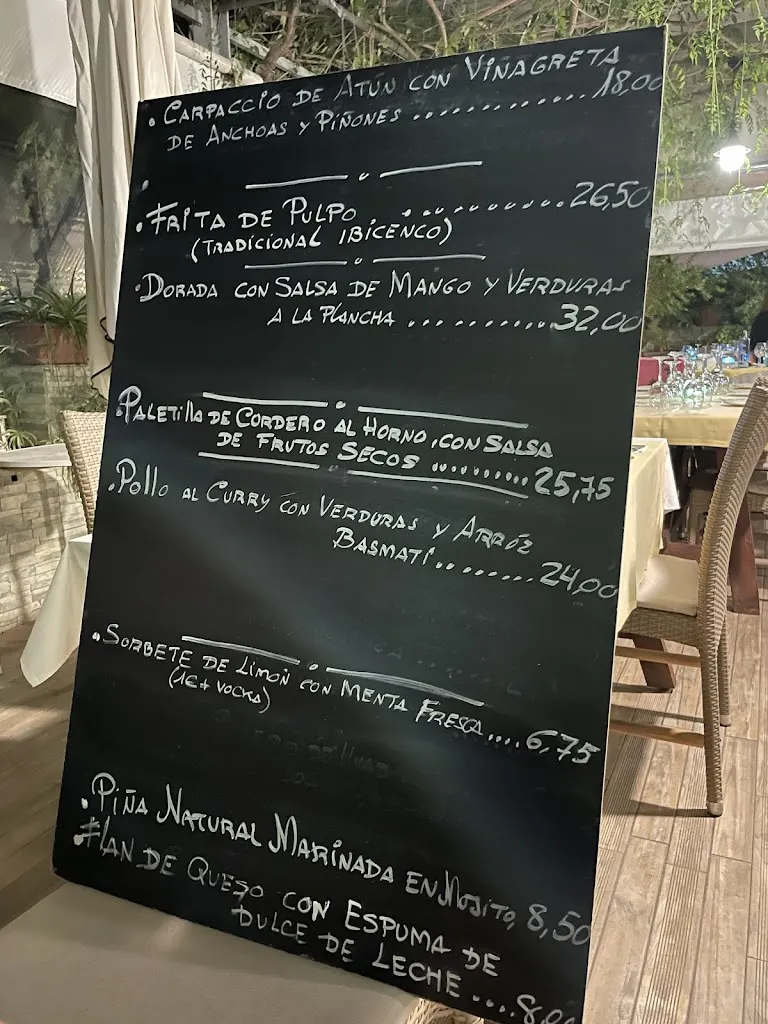 • CARPACCIO DE ATÚN CON VINAGRETA
DE ANCHOAS Y PIÑONES ............. 18,00
• FRITA DE PULPO ............. 26,50
(TRADICIONAL IBICENCO)
• DORADA CON SALSA DE MANGO Y VERDURAS
A LA PLANCHA ............. 32,00
• PALETILLA DE CORDERO AL HORNO, CON SALSA
DE FRUTOS SECOS .......... 25,75
• POLLO AL CURRY CON VERDURAS Y ARRÓZ
BASMATÍ .......... 24,00
• SORBETE DE LIMÓN CON MENTA FRESCA .... 6,75
(1€ + VOCKA)
• PIÑA NATURAL MARINADA EN MOJITO, 8,50
• FLAN DE QUESO CON ESPUMA DE
DULCE DE LECHE .... 8,00